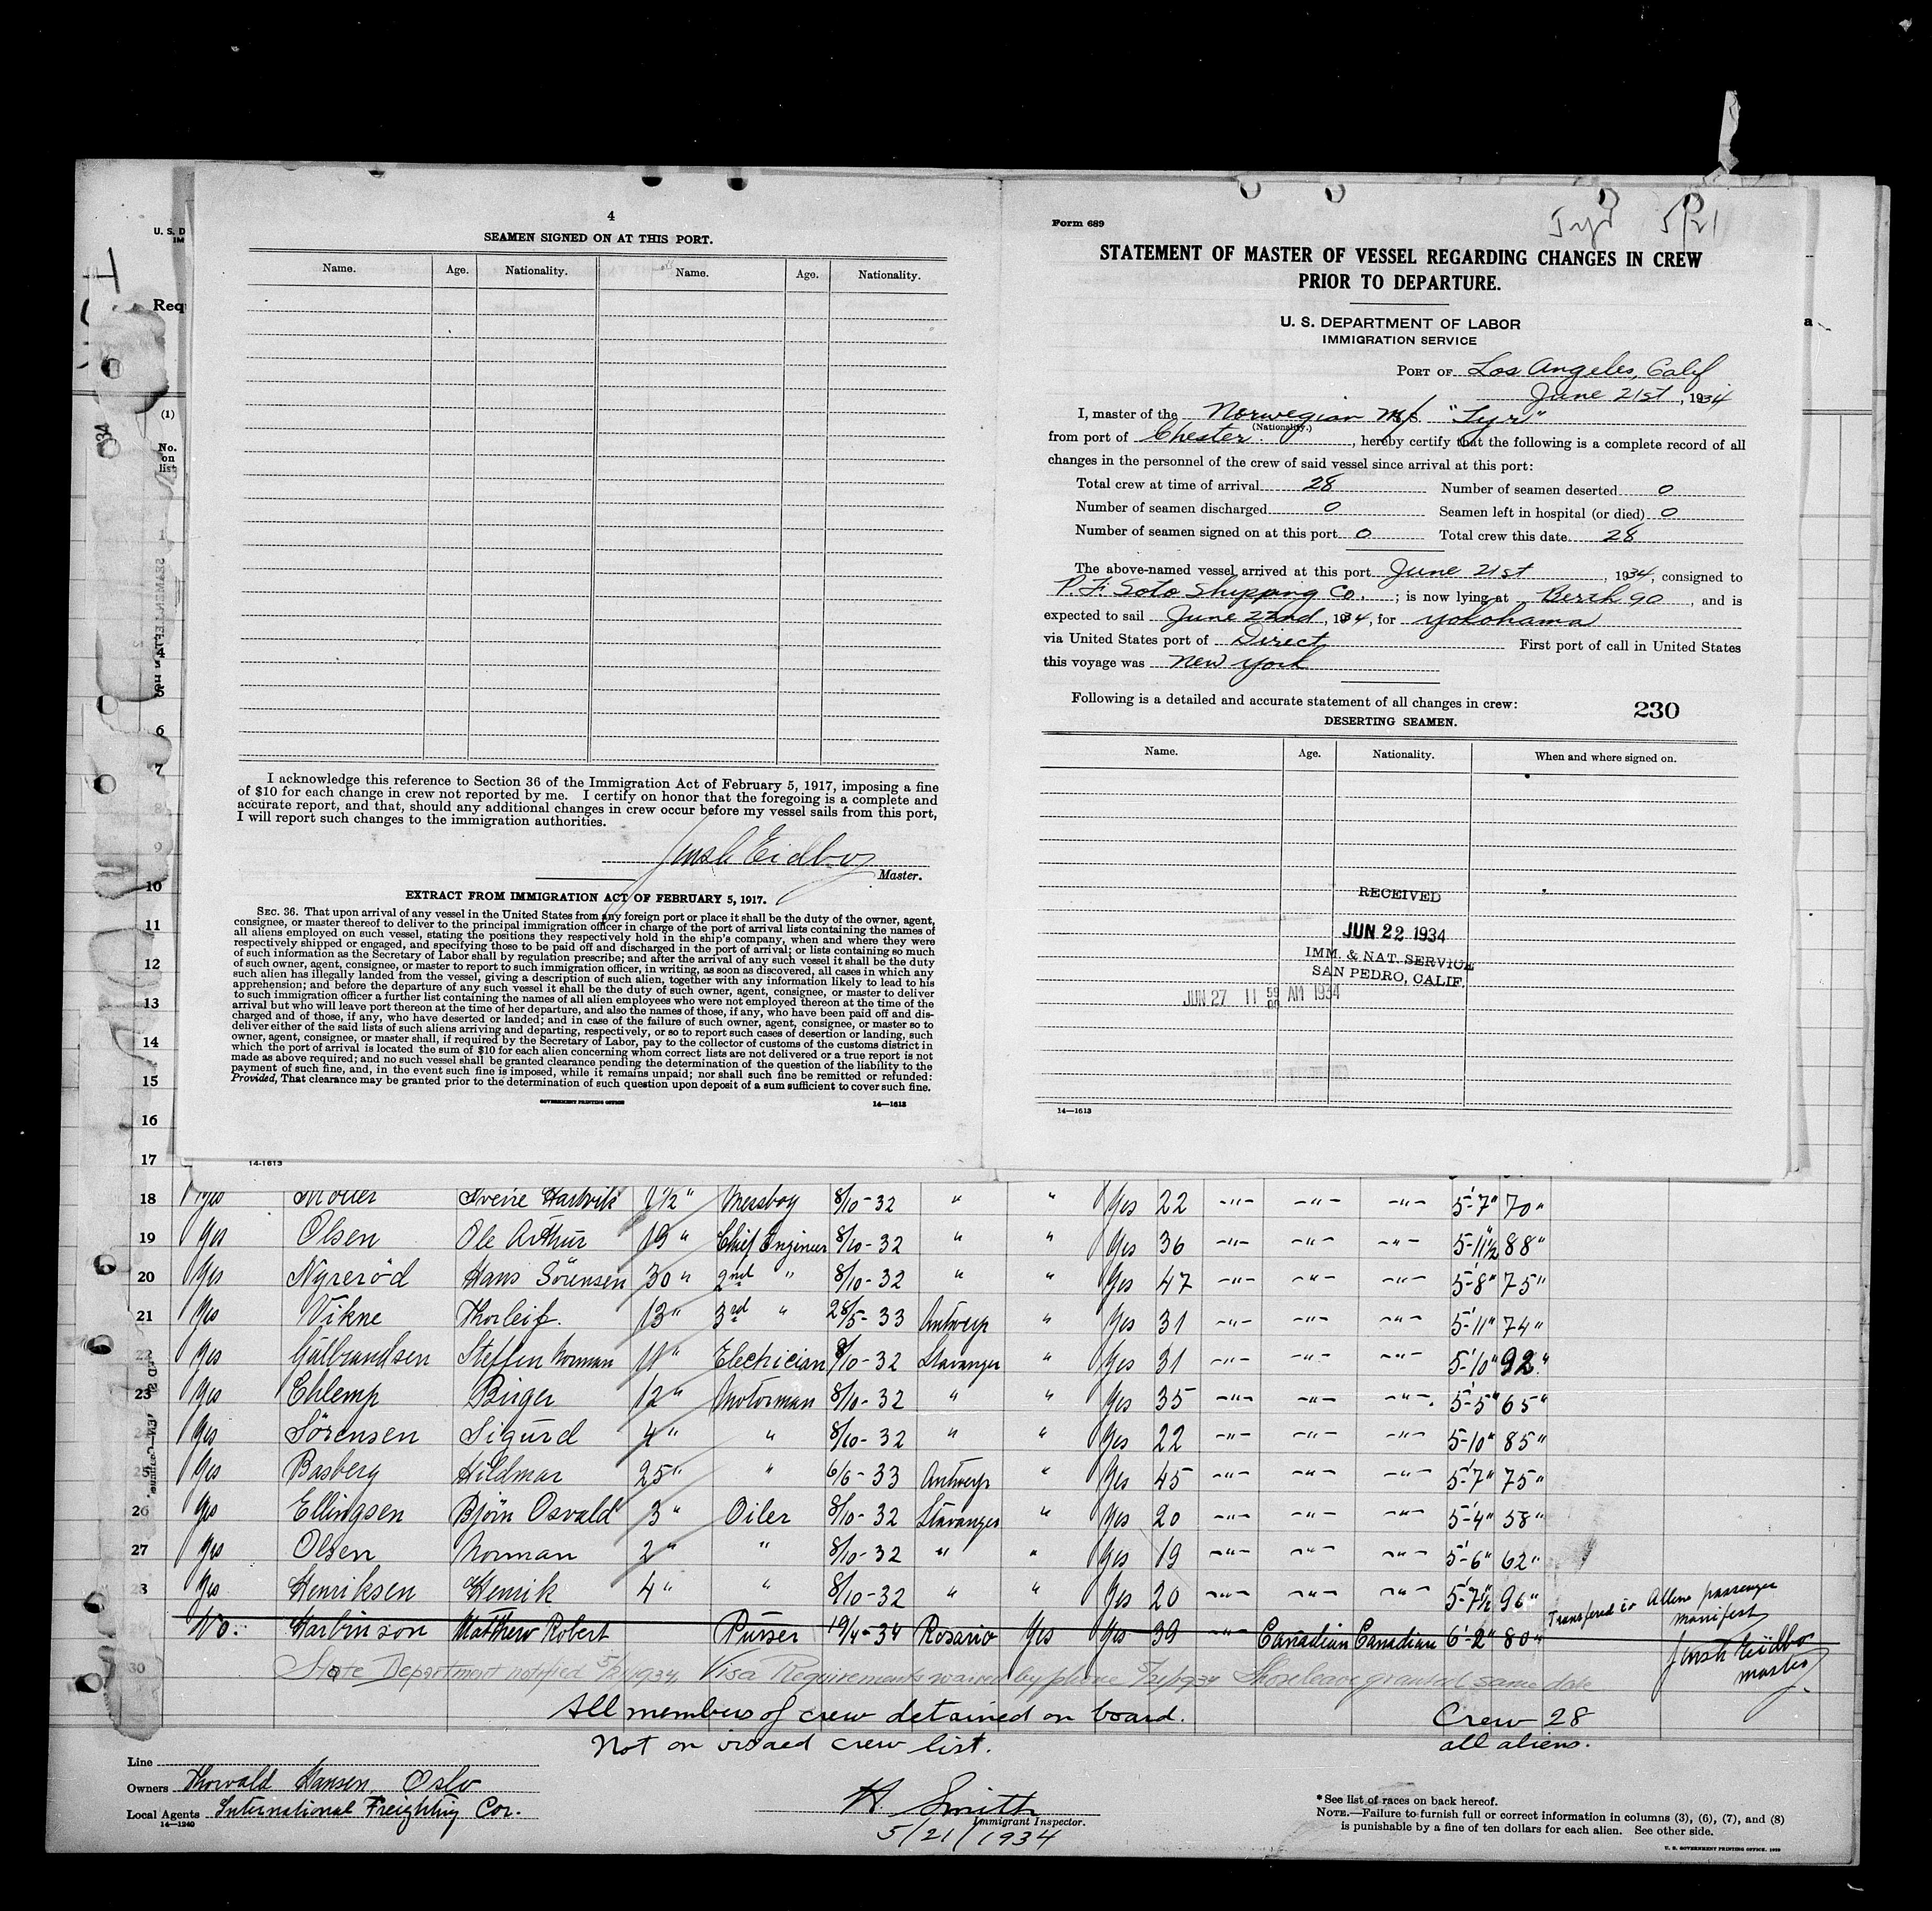 4
SEAMEN SIGNED ON AT THIS PORT.
Name. Age. Nationality. Name. Age. Nationality.
I acknowledge this reference to Section 36 of the Immigration Act of February 5, 1917, imposing a fine
of $10 for each change in crew not reported by me. I certify on honor that the foregoing is a complete and
accurate report, and that, should any additional changes in crew occur before my vessel sails from this port,
I will report such changes to the immigration authorities.
Master.
EXTRACT FROM IMMIGRATION ACT OF FEBRUARY 5, 1917.
SEC. 36. That upon arrival of any vessel in the United States from any foreign port or place it shall be the duty of the owner, agent,
consignee, or master thereof to deliver to the principal immigration officer in charge of the port of arrival lists containing the names of
all aliens employed on such vessel, stating the positions they respectively hold in the ship's company, when and where they were
respectively shipped or engaged, and specifying those to be paid off and discharged in the port of arrival; or lists containing so much
of such information as the Secretary of Labor shall by regulation prescribe; and after the arrival of any such vessel it shall be the duty
of such owner, agent, consignee, or master to report to such immigration officer, in writing, as soon as discovered, all cases in which any
such alien has illegally landed from the vessel, giving a description of such alien, together with any information likely to lead to his
apprehension; and before the departure of any such vessel it shall be the duty of such owner, agent, consignee, or master to deliver
to such immigration officer a further list containing the names of all alien employees who were not employed thereon at the time of the
arrival but who will leave port thereon at the time of her departure, and also the names of those, if any, who have been paid off and dis-
charged and of those, if any, who have deserted or landed; and in case of the failure of such owner, agent, consignee, or master so to
deliver either of the said lists of such aliens arriving and departing, respectively, or so to report such cases of desertion or landing, such
owner, agent, consignee, or master shall, if required by the Secretary of Labor, pay to the collector of customs of the customs district in
which the port of arrival is located the sum of $10 for each alien concerning whom correct lists are not delivered or a true report is not
made as above required; and no such vessel shall be granted clearance pending the determination of the question of the liability to the
payment of such fine, and, in the event such fine is imposed, while it remains unpaid; nor shall such fine be remitted or refunded:
Provided, That clearance may be granted prior to the determination of such question upon deposit of a sum sufficient to cover such fine.
GOVERNMENT PRINTING OFFICE 14—1613
Form 689
5/21
STATEMENT OF MASTER OF VESSEL REGARDING CHANGES IN CREW
PRIOR TO DEPARTURE.
U. S. DEPARTMENT OF LABOR
IMMIGRATION SERVICE
PORT OF Los Angeles, Calif
June 21st, 1934
I, master of the Norwegian M/S. "Tyr"
(Nationality.)
from port of Chester, hereby certify that the following is a complete record of all
changes in the personnel of the crew of said vessel since arrival at this port:
Total crew at time of arrival 28 Number of seamen deserted 0
Number of seamen discharged 0 Seamen left in hospital (or died) 0
Number of seamen signed on at this port 0 Total crew this date 28
The above-named vessel arrived at this port June 21st, 1934, consigned to
P. F. Soto Shipping Co.; is now lying at Berth 90, and is
expected to sail June 22nd, 1934, for Yokohama
via United States port of Direct First port of call in United States
this voyage was New York
Following is a detailed and accurate statement of all changes in crew:
230
DESERTING SEAMEN.
Name. Age. Nationality. When and where signed on.
RECEIVED
JUN 22 1934
IMM. & NAT. SERVICE
SAN PEDRO, CALIF.
JUN 27 11 AM 1934
14—1613
U. S. D
IM
Req
(1)
No.
on
list
6
7
8
9
10
11
12
13
14
15
16
17
14-1613
18 Yes Sverre 1½ " Messboy 8/10-32 " " Yes 22 -"- -"- -"- 5-7" 70"
19 Yes Olsen Ole Arthur 19 " Chief Engineer 8/10-32 " " Yes 36 -"- -"- -"- 5-11½ 88"
20 Yes Nyreröd Hans Sörensen 30 " 2nd " 8/10-32 " " Yes 47 -"- -"- -"- 5-8" 75"
21 Yes Vikne Thorleif. 13 " 3rd " 28/5-33 Antwerp " Yes 31 -"- -"- -"- 5-11" 74"
22 Yes Gulbrandsen Steffen Norman 11 " Electrician 8/10-32 Stavanger " Yes 31 -"- -"- -"- 5-10" 92"
23 Yes Ehlemp Birger 12 " Motorman 8/10-32 " " Yes 35 -"- -"- -"- 5-5" 65"
24 Yes Sörensen Sigurd 4 " " 8/10-32 " " Yes 22 -"- -"- -"- 5-10" 85"
25 Yes Basberg Hildmar 25 " " 6/6-33 Antwerp " Yes 45 -"- -"- -"- 5-7" 75"
26 Yes Ellingsen Björn Osvald 3 " Oiler 8/10-32 Stavanger " Yes 20 -"- -"- -"- 5-4" 58"
27 Yes Olsen Norman 2 " " 8/10-32 " " Yes 19 -"- -"- -"- 5-6" 62"
28 Yes Henriksen Henrik 4 " " 8/10-32 " " Yes 20 -"- -"- -"- 5-7½" 96"
No. Harbinson Matthew Robert Purser 19/4-34 Rosario Yes Yes 39 -"- Canadian Canadian 6-2" 80"
Transfered to Aliens passenger
manifest
master
30 State Department notified 5/21/1934, Visa Requirements waived by phone 5/21/1934 Shoreleave granted same date
All members of crew detained on board. Crew 28
Not on visaed crew list. all aliens.
Line
Owners Thorvald Hansen, Oslo
Local Agents International Freighting Cor.
14—1240
H Smith
Immigrant Inspector.
5/21/1934
* See list of races on back hereof.
NOTE.—Failure to furnish full or correct information in columns (3), (6), (7), and (8)
is punishable by a fine of ten dollars for each alien. See other side.
U. S. GOVERNMENT PRINTING OFFICE